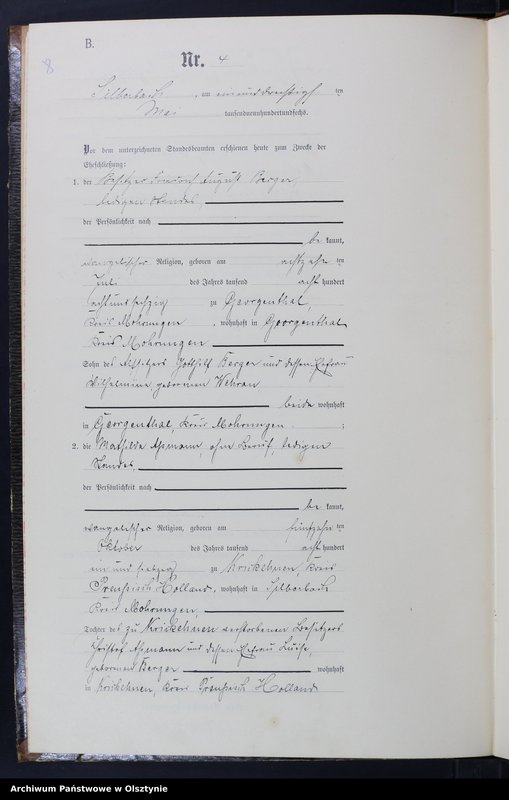 8
B.
Nr. 4
Silberbach, am einunddreißigsten
Mai tausendneunhundertundsechs.
Vor dem unterzeichneten Standesbeamten erschienen heute zum Zwecke der
Eheschließung:
1. der Besitzer Friedrich August Berger,
ledigen Standes,
der Persönlichkeit nach
be kannt,
evangelischer Religion, geboren am achtzehn ten
Juli des Jahres tausend acht hundert
achtundsechzig zu Georgenthal,
Kreis Mohrungen, wohnhaft in Georgenthal
Kreis Mohrungen
Sohn des Altsitzers Gotthilf Berger und dessen Ehefrau
Wilhelmine geborenen
beide wohnhaft
in Georgenthal, Kreis Mohrungen ;
2. die Mathilde Aßmann, ohne Beruf, ledigen
Standes,
der Persönlichkeit nach
be kannt,
evangelischer Religion, geboren am fünfzehn ten
Oktober des Jahres tausend acht hundert
ein und siebzig zu Krickehnen, Kreis
Preußisch Holland, wohnhaft in Silberbach
Kreis Mohrungen,
Tochter des zu Krickehnen verstorbenen Besitzers
Christof Aßmann und dessen Ehefrau Luise,
geborenen Berger wohnhaft
in Krickehnen, Kreis Preußisch Holland
Archiwum Państwowe w Olsztynie